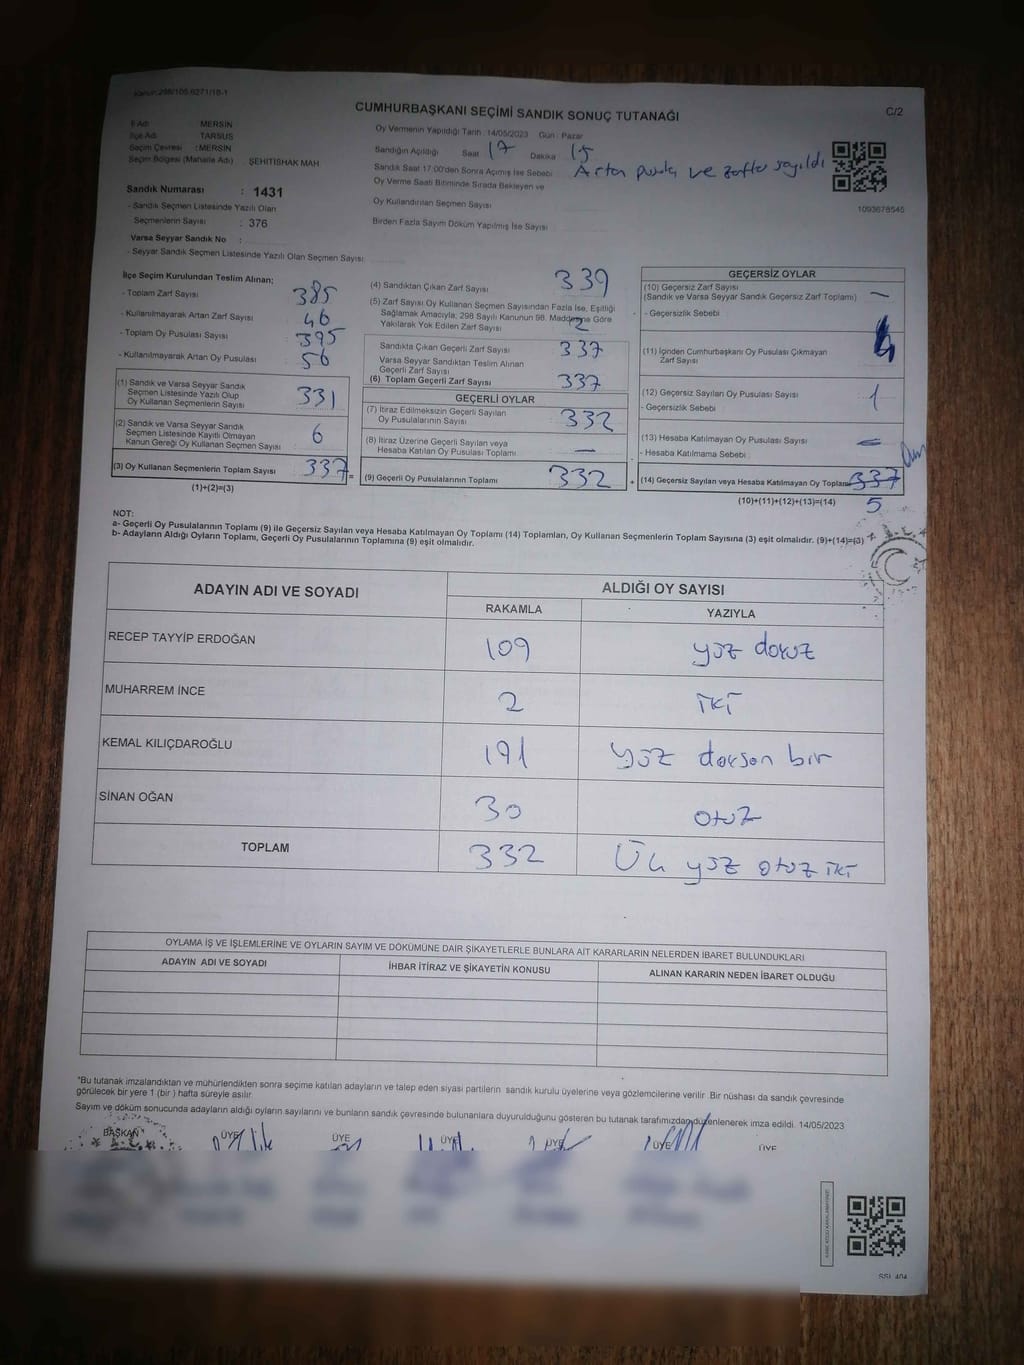 Kanun:298/105.6271/18-1
CUMHURBAŞKANI SEÇİMİ SANDIK SONUÇ TUTANAĞI
C/2
İl Adı MERSİN
İlçe Adı TARSUS
Seçim Çevresi : MERSİN
Seçim Bölgesi (Mahalle Adı) ŞEHİTİSHAK MAH
Sandık Numarası : 1431
- Sandık Seçmen Listesinde Yazılı Olan
Seçmenlerin Sayısı : 376
Varsa Seyyar Sandık No :
- Seyyar Sandık Seçmen Listesinde Yazılı Olan Seçmen Sayısı
Oy Vermenin Yapıldığı Tarih : 14/05/2023 Gün : Pazar
Sandığın Açıldığı Saat 17 Dakika 15
Sandık Saat 17:00'den Sonra Açımış İse Sebebi Artan pusula ve zarflar sayıldı
Oy Verme Saati Bitiminde Sırada Bekleyen ve
Oy Kullandırılan Seçmen Sayısı
Birden Fazla Sayım Döküm Yapılmış İse Sayısı
1093678545
İlçe Seçim Kurulundan Teslim Alınan;
- Toplam Zarf Sayısı 385
- Kullanılmayarak Artan Zarf Sayısı 46
- Toplam Oy Pusulası Sayısı 395
- Kullanılmayarak Artan Oy Pusulası 56
(1) Sandık ve Varsa Seyyar Sandık
Seçmen Listesinde Yazılı Olup
Oy Kullanan Seçmenlerin Sayısı 331
(2) Sandık ve Varsa Seyyar Sandık
Seçmen Listesinde Kayıtlı Olmayan
Kanun Gereği Oy Kullanan Seçmen Sayısı 6
(3) Oy Kullanan Seçmenlerin Toplam Sayısı 337 =
(1)+(2)=(3)
(4) Sandıktan Çıkan Zarf Sayısı 339
(5) Zarf Sayısı Oy Kullanan Seçmen Sayısından Fazla İse, Eşitliği
Sağlamak Amacıyla, 298 Sayılı Kanunun 98. Maddesine Göre
Yakılarak Yok Edilen Zarf Sayısı 2
Sandıkta Çıkan Geçerli Zarf Sayısı 337
Varsa Seyyar Sandıktan Teslim Alınan
Geçerli Zarf Sayısı
(6) Toplam Geçerli Zarf Sayısı 337
GEÇERLİ OYLAR
(7) İtiraz Edilmeksizin Geçerli Sayılan
Oy Pusulalarının Sayısı 332
(8) İtiraz Üzerine Geçerli Sayılan veya
Hesaba Katılan Oy Pusulası Toplamı —
(9) Geçerli Oy Pusulalarının Toplamı 332 +
GEÇERSİZ OYLAR
(10) Geçersiz Zarf Sayısı
(Sandık ve Varsa Seyyar Sandık Geçersiz Zarf Toplamı) —
- Geçersizlik Sebebi
(11) İçinden Cumhurbaşkanı Oy Pusulası Çıkmayan
Zarf Sayısı 4
(12) Geçersiz Sayılan Oy Pusulası Sayısı 1
- Geçersizlik Sebebi
(13) Hesaba Katılmayan Oy Pusulası Sayısı —
- Hesaba Katılmama Sebebi
(14) Geçersiz Sayılan veya Hesaba Katılmayan Oy Toplamı 337
(10)+(11)+(12)+(13)=(14) 5
NOT:
a- Geçerli Oy Pusulalarının Toplamı (9) ile Geçersiz Sayılan veya Hesaba Katılmayan Oy Toplamı (14) Toplamları, Oy Kullanan Seçmenlerin Toplam Sayısına (3) eşit olmalıdır. (9)+(14)=(3)
b- Adayların Aldığı Oyların Toplamı, Geçerli Oy Pusulalarının Toplamına (9) eşit olmalıdır.
ADAYIN ADI VE SOYADI
ALDIĞI OY SAYISI
RAKAMLA YAZIYLA
RECEP TAYYİP ERDOĞAN 109 yüz dokuz
MUHARREM İNCE 2 iki
KEMAL KILIÇDAROĞLU 191 yüz doksan bir
SİNAN OĞAN 30 otuz
TOPLAM 332 Üç yüz otuz iki
OYLAMA İŞ VE İŞLEMLERİNE VE OYLARIN SAYIM VE DÖKÜMÜNE DAİR ŞİKAYETLERLE BUNLARA AİT KARARLARIN NELERDEN İBARET BULUNDUKLARI
ADAYIN ADI VE SOYADI İHBAR İTİRAZ VE ŞİKAYETİN KONUSU ALINAN KARARIN NEDEN İBARET OLDUĞU
"Bu tutanak imzalandıktan ve mühürlendikten sonra seçime katılan adayların ve talep eden siyasi partilerin sandık kurulu üyelerine veya gözlemcilerine verilir. Bir nüshası da sandık çevresinde
görülecek bir yere 1 (bir ) hafta süreyle asılır.
Sayım ve döküm sonucunda adayların aldığı oyların sayılarını ve bunların sandık çevresinde bulunanlara duyurulduğunu gösteren bu tutanak tarafımızdan düzenlenerek imza edildi. 14/05/2023
BAŞKAN ÜYE ÜYE ÜYE ÜYE ÜYE ÜYE
SSI 404